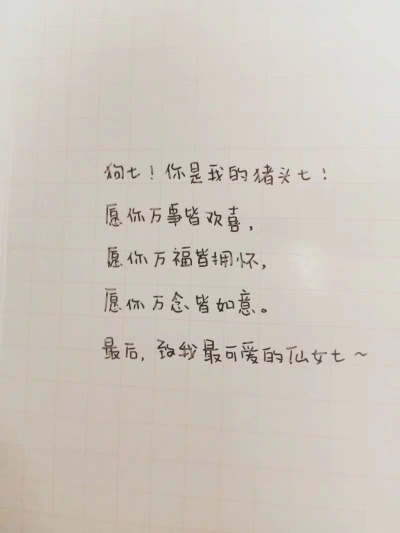 狗七！你是我的猪头七！
愿你万事皆欢喜，
愿你万福皆拥怀，
愿你万念皆如意。
最后，致我最可爱的仙女七～